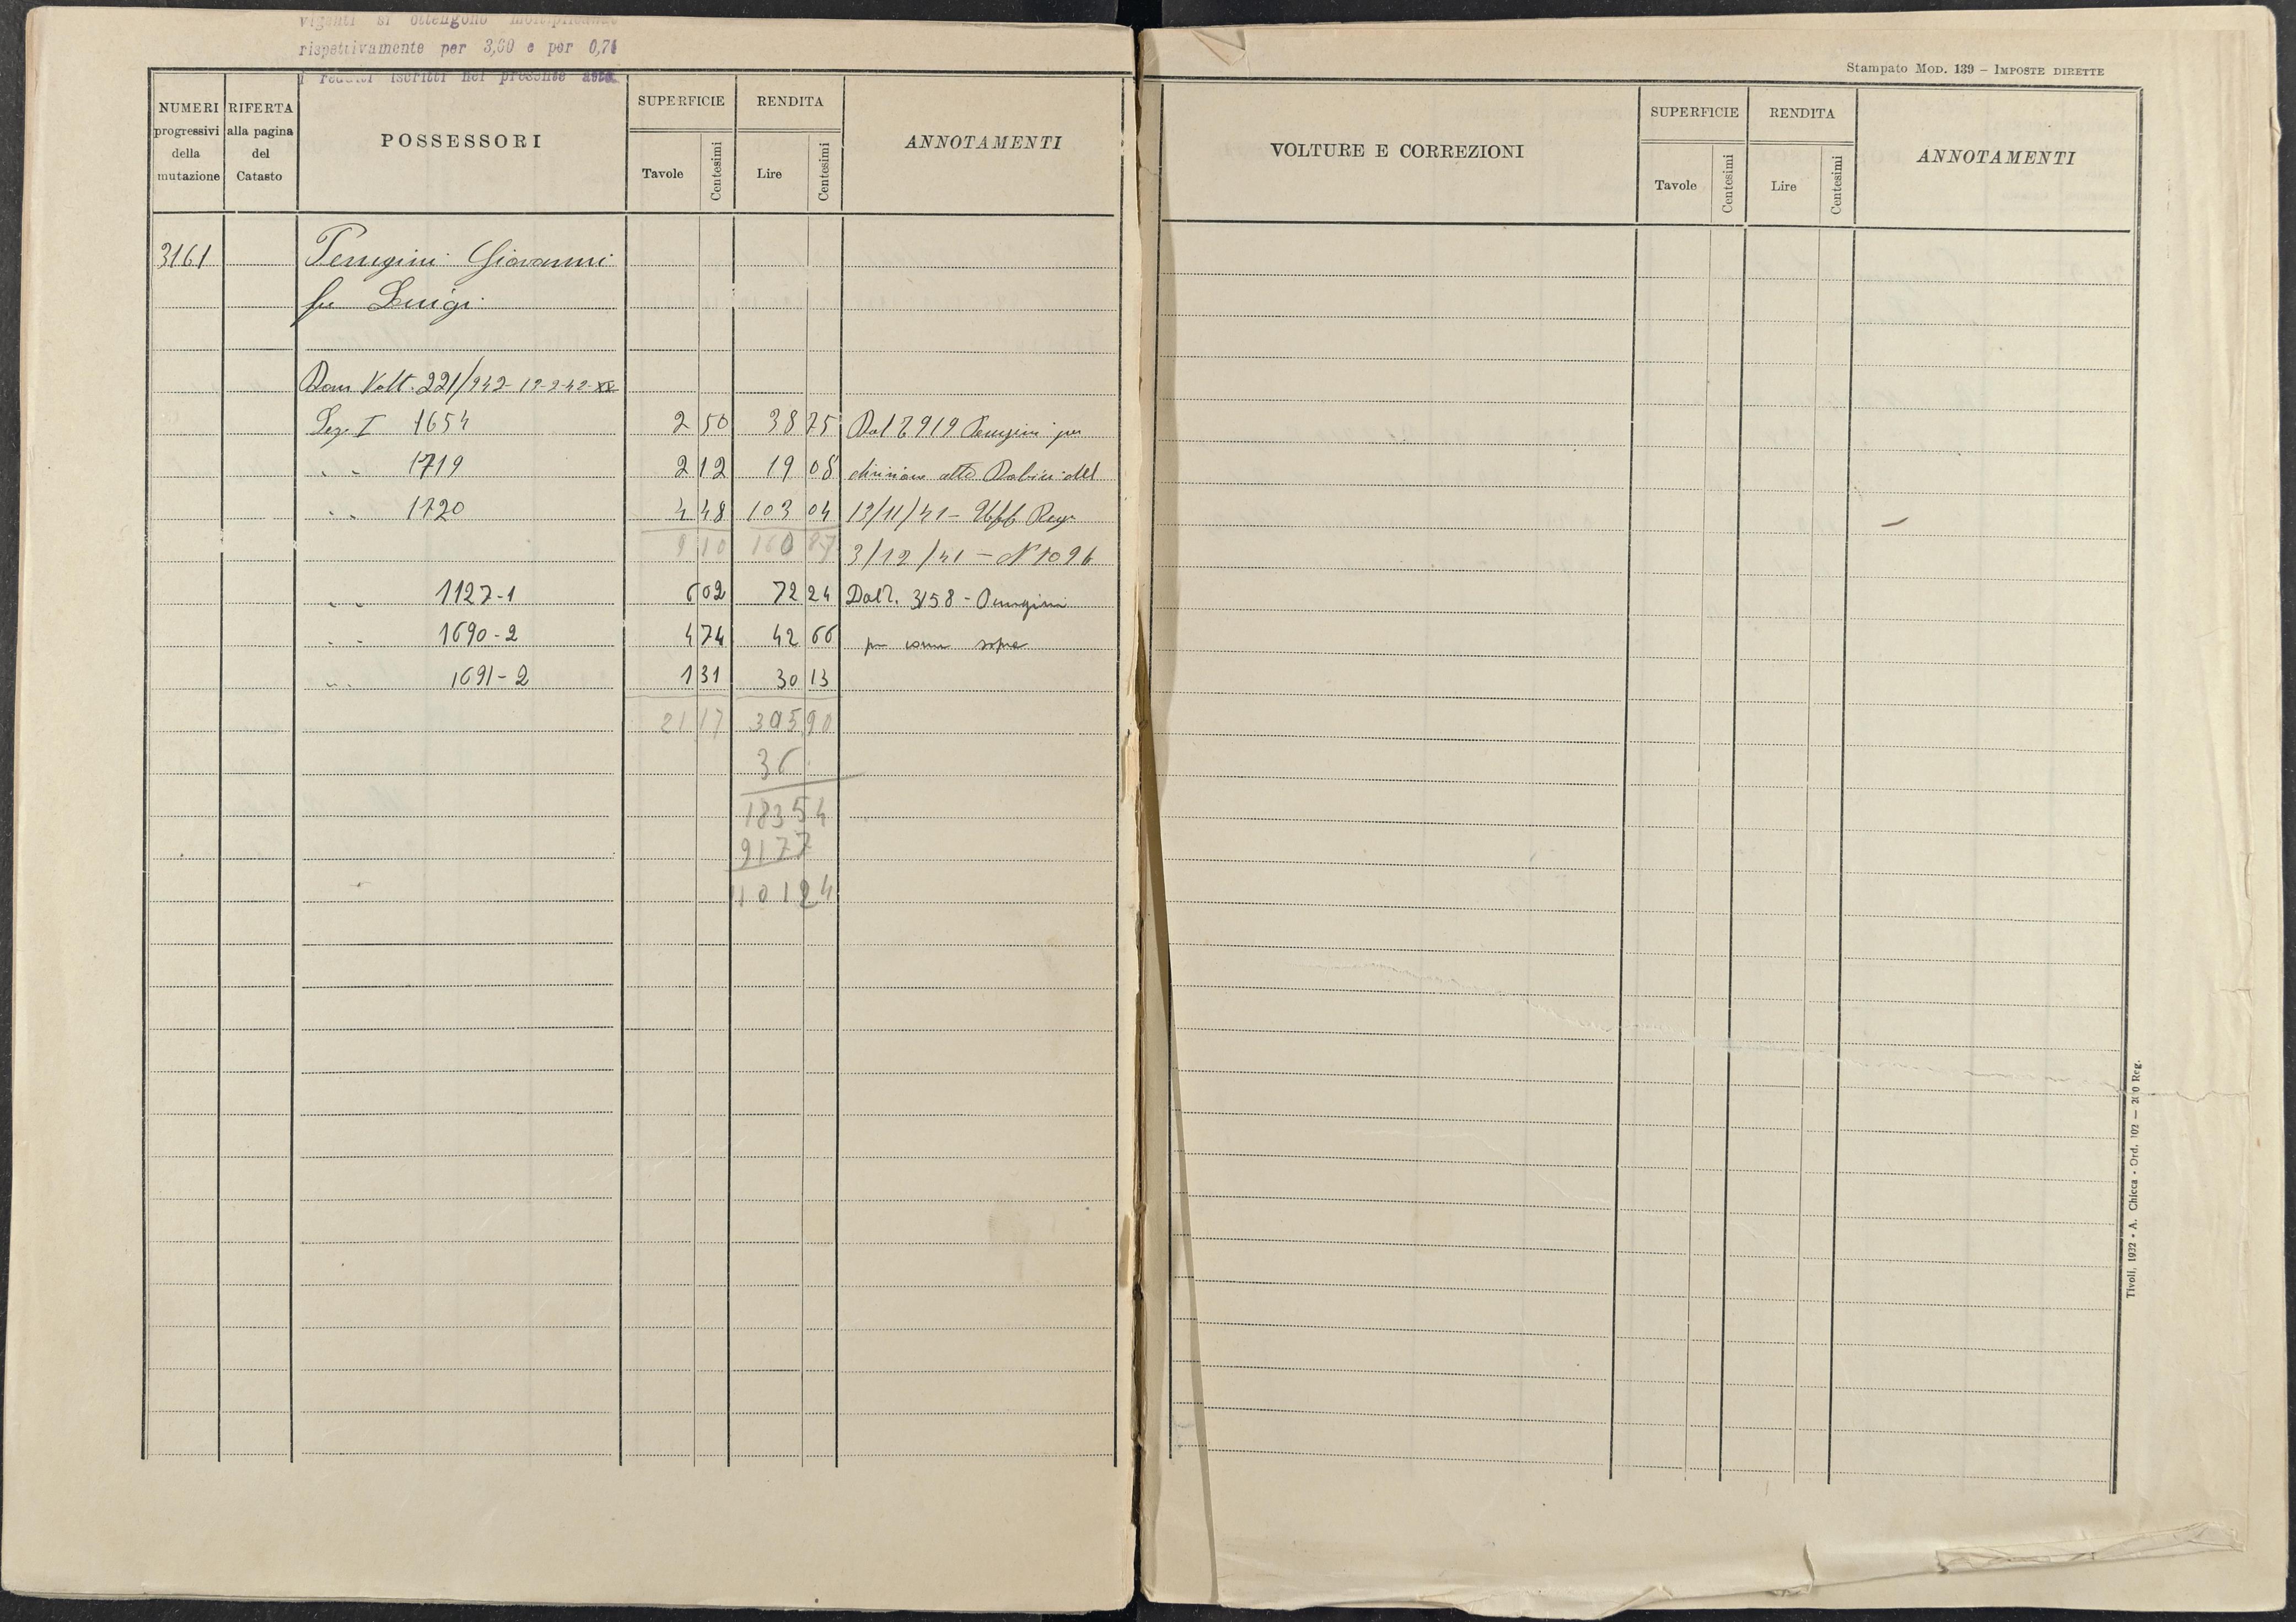 vigenti si ottengono moltiplicando
rispettivamente per 3,60 e per 0,71
i redditi iscritti nel presente
NUMERI progressivi della mutazione
RIFERTA alla pagina del Catasto
POSSESSORI
SUPERFICIE
Tavole Centesimi
RENDITA
Lire Centesimi
ANNOTAMENTI
3161 Perugini Giovanni
fu Luigi
Dom Volt. 221/942
Sez. I 1654 2 50 38 75 Dal 2919 Perugini per
" " 1719 2 12 19 08 divisione atto del
" " 1720 4 48 103 04 13/11/41 - Uff Reg
9 10 160 87 3/12/41 - N 1096
" " 1127-1 6 02 72 24 Dal 3158 - Perugini
" " 1690-2 4 74 42 66 per come sopra
" " 1691-2 1 31 30 13
21 17 305 90
36
18354
9177
110124
Stampato MOD. 139 – IMPOSTE DIRETTE
VOLTURE E CORREZIONI
SUPERFICIE
Tavole Centesimi
RENDITA
Lire Centesimi
ANNOTAMENTI
Tivoli, 1932 • A. Chicca - Ord. 102 — 200 Reg.